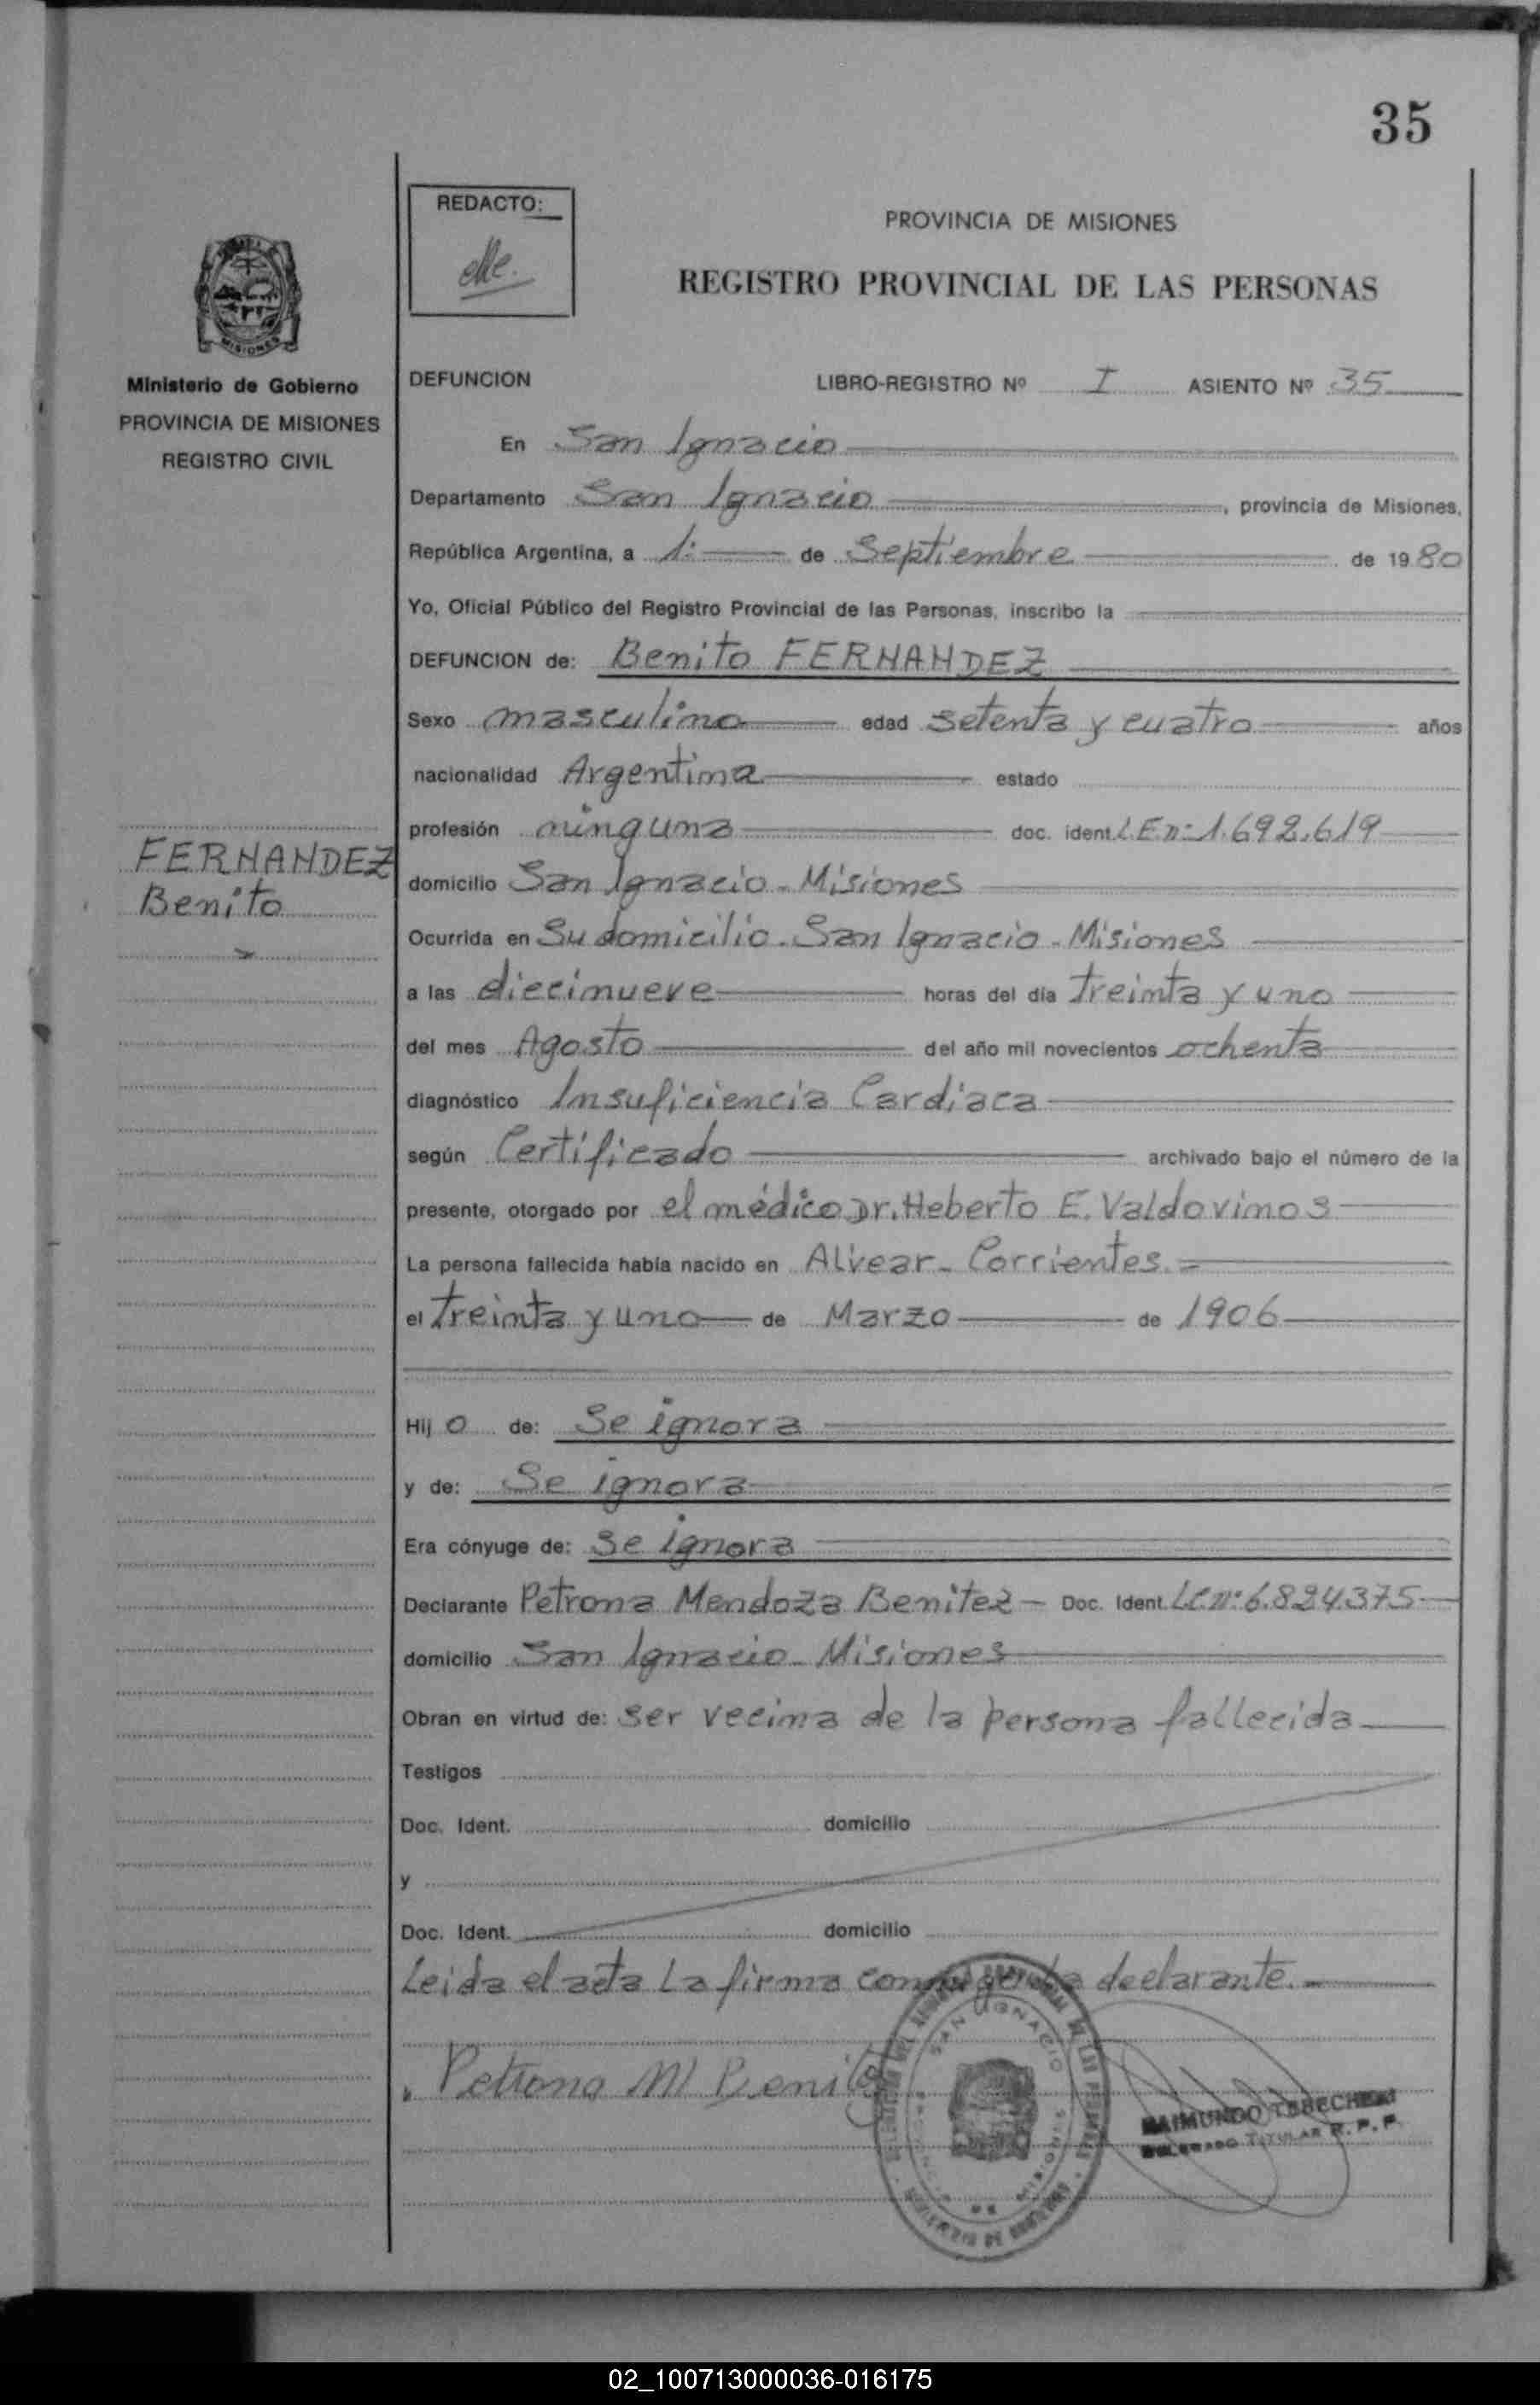 35
REDACTO:
PROVINCIA DE MISIONES
REGISTRO PROVINCIAL DE LAS PERSONAS
MISIONES
Ministerio de Gobierno
PROVINCIA DE MISIONES
REGISTRO CIVIL
DEFUNCION LIBRO-REGISTRO Nº I ASIENTO Nº 35
En San Ignacio
Departamento San Ignacio, provincia de Misiones,
República Argentina, a 1º de Septiembre de 1980
Yo, Oficial Público del Registro Provincial de las Personas, inscribo la
DEFUNCION de: Benito FERNANDEZ
Sexo masculino edad setenta y cuatro años
nacionalidad Argentina estado
profesión ninguna doc. ident. L.E.nº 1.692.619
FERNANDEZ
Benito
domicilio San Ignacio - Misiones
Ocurrida en Su domicilio. San Ignacio - Misiones
a las diecinueve horas del día treinta y uno
del mes Agosto del año mil novecientos ochenta
diagnóstico Insuficiencia Cardiaca
según Certificado archivado bajo el número de la
presente, otorgado por el médico Dr. Heberto E. Valdovinos
La persona fallecida había nacido en Alvear - Corrientes.=
el treinta y uno de Marzo de 1906
Hij o de: Se ignora
y de: Se ignora
Era cónyuge de: Se ignora
Declarante Petrona Mendoza Benitez - Doc. Ident. LC nº 6.824.375
domicilio San Ignacio - Misiones
Obran en virtud de: ser vecina de la persona fallecida
Testigos
Doc. Ident. domicilio
y
Doc. Ident. domicilio
Leida el acta La firma conmigo la declarante.-
Petrona M Benitez
SAN IGNACIO
MISIONES
RAIMUNDO
DELEGADO TITULAR R. P. P.
02_100713000036-016175